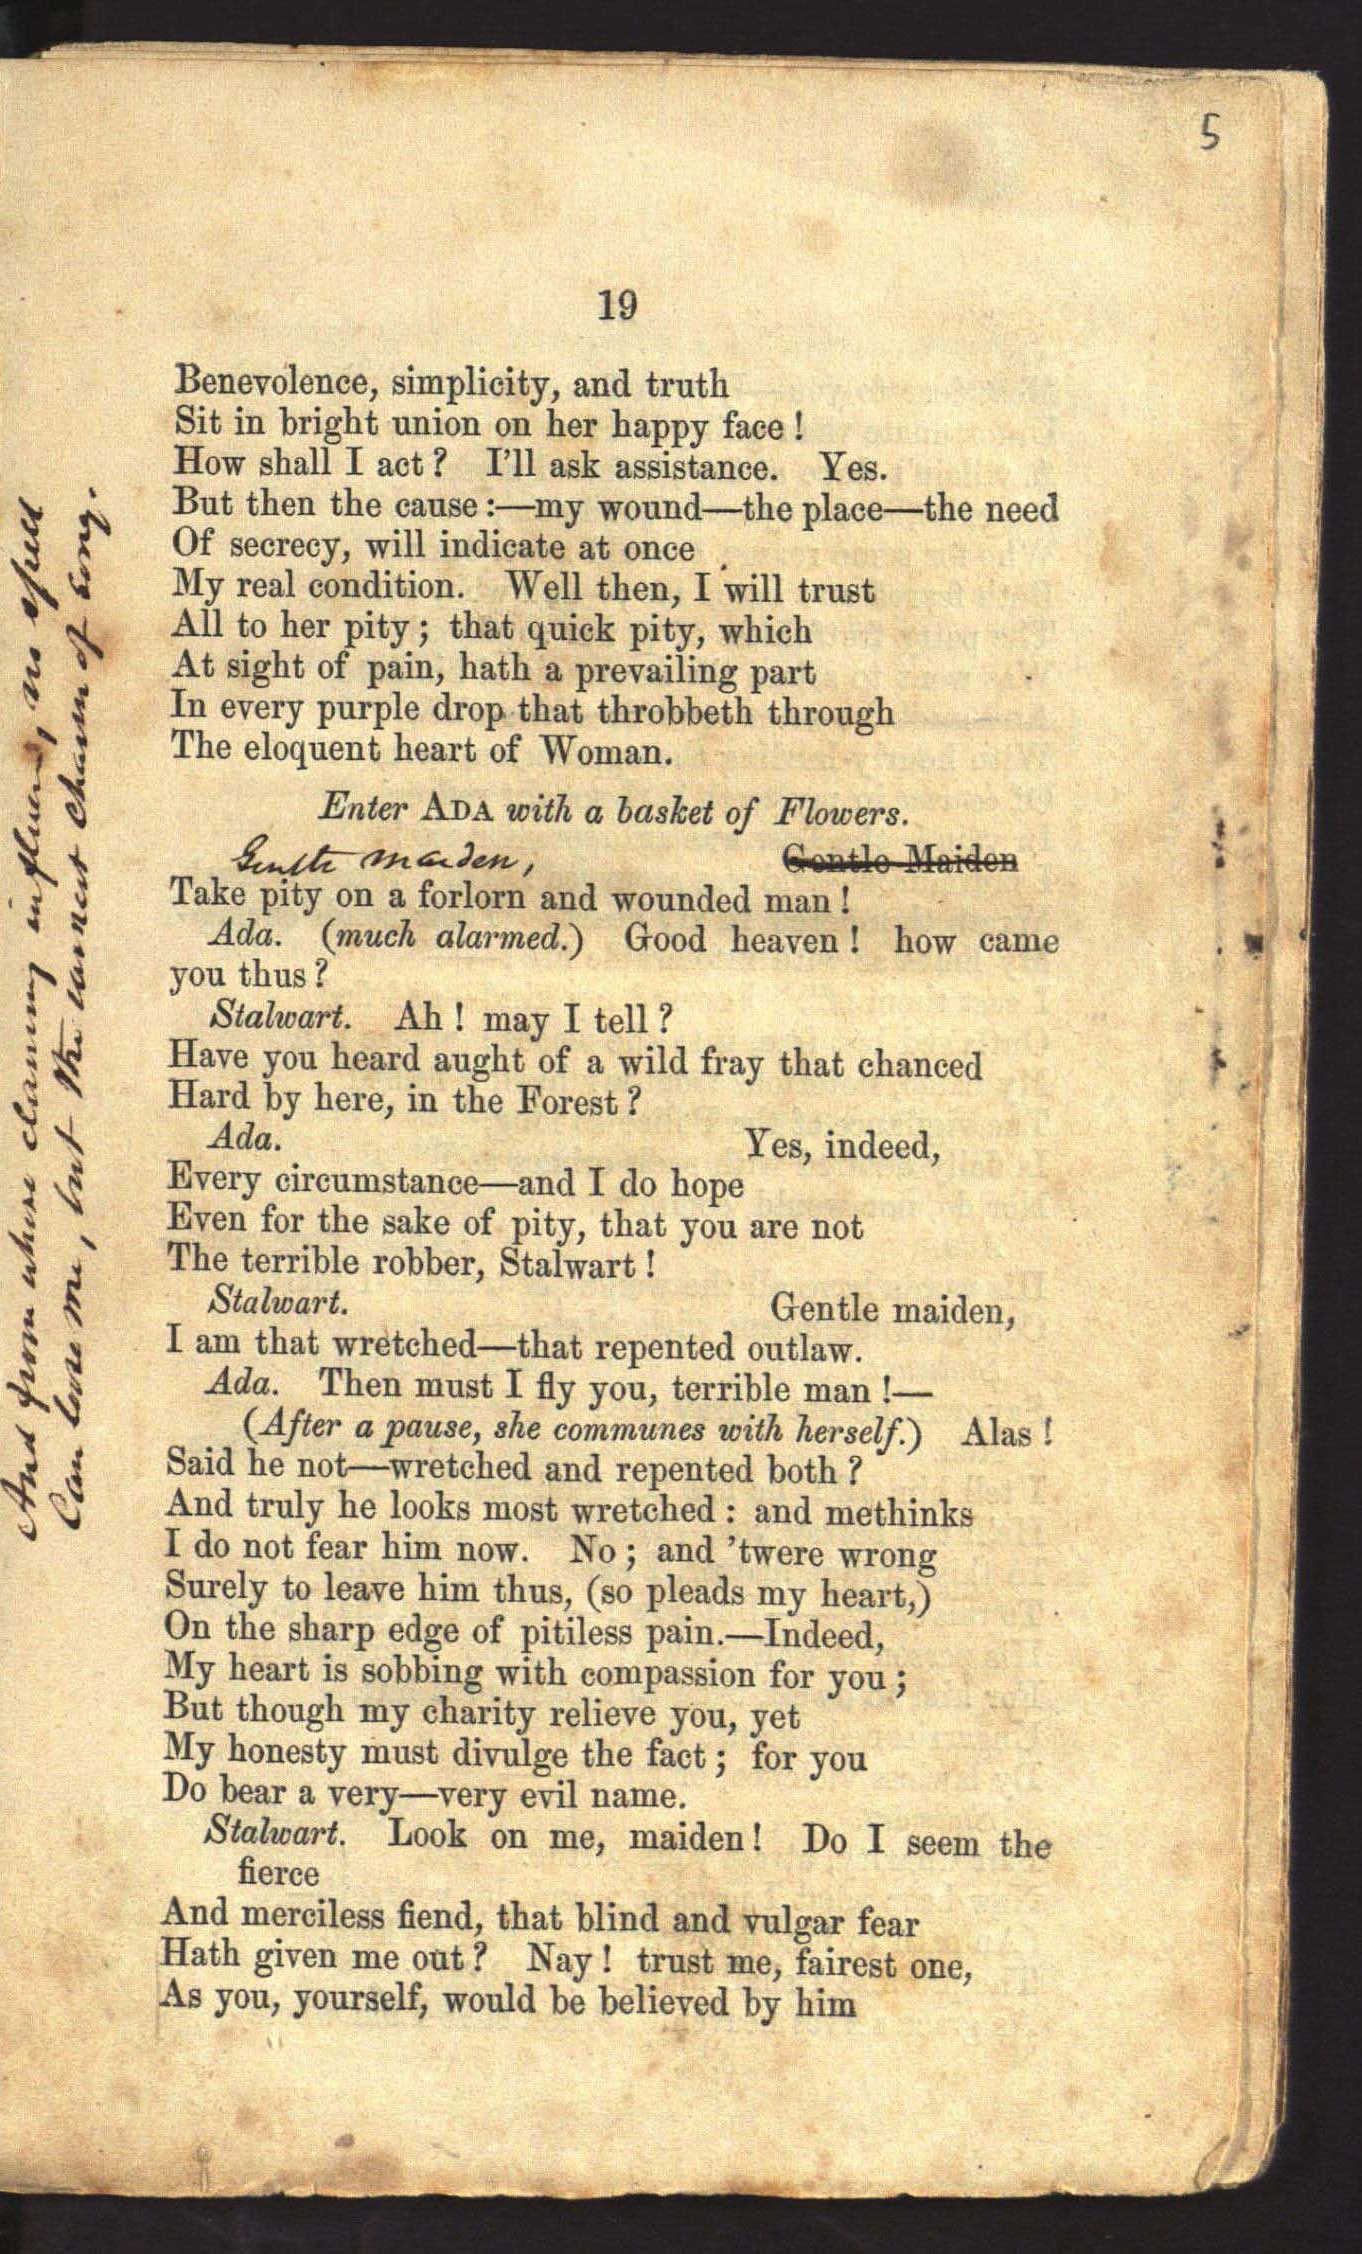 5
19
Benevolence, simplicity, and truth
Sit in bright union on her happy face !
How shall I act ? I'll ask assistance. Yes.
But then the cause :—my wound—the place—the need
Of secrecy, will indicate at once
My real condition. Well then, I will trust
All to her pity ; that quick pity, which
At sight of pain, hath a prevailing part
In every purple drop that throbbeth through
The eloquent heart of Woman.
Enter ADA with a basket of Flowers.
Gentle maiden, Gentle Maiden
Take pity on a forlorn and wounded man !
Ada. (much alarmed.) Good heaven ! how came
you thus ?
Stalwart. Ah ! may I tell ?
Have you heard aught of a wild fray that chanced
Hard by here, in the Forest ?
Ada. Yes, indeed,
Every circumstance—and I do hope
Even for the sake of pity, that you are not
The terrible robber, Stalwart !
Stalwart. Gentle maiden,
I am that wretched—that repented outlaw.
Ada. Then must I fly you, terrible man !—
(After a pause, she communes with herself.) Alas !
Said he not—wretched and repented both ?
And truly he looks most wretched : and methinks
I do not fear him now. No ; and 'twere wrong
Surely to leave him thus, (so pleads my heart,)
On the sharp edge of pitiless pain.—Indeed,
My heart is sobbing with compassion for you ;
But though my charity relieve you, yet
My honesty must divulge the fact ; for you
Do bear a very—very evil name.
Stalwart. Look on me, maiden ! Do I seem the
fierce
And merciless fiend, that blind and vulgar fear
Hath given me out ? Nay ! trust me, fairest one,
As you, yourself, would be believed by him
And from whose claiming influence, no spell
Can lure me, but the earnest charm of song.